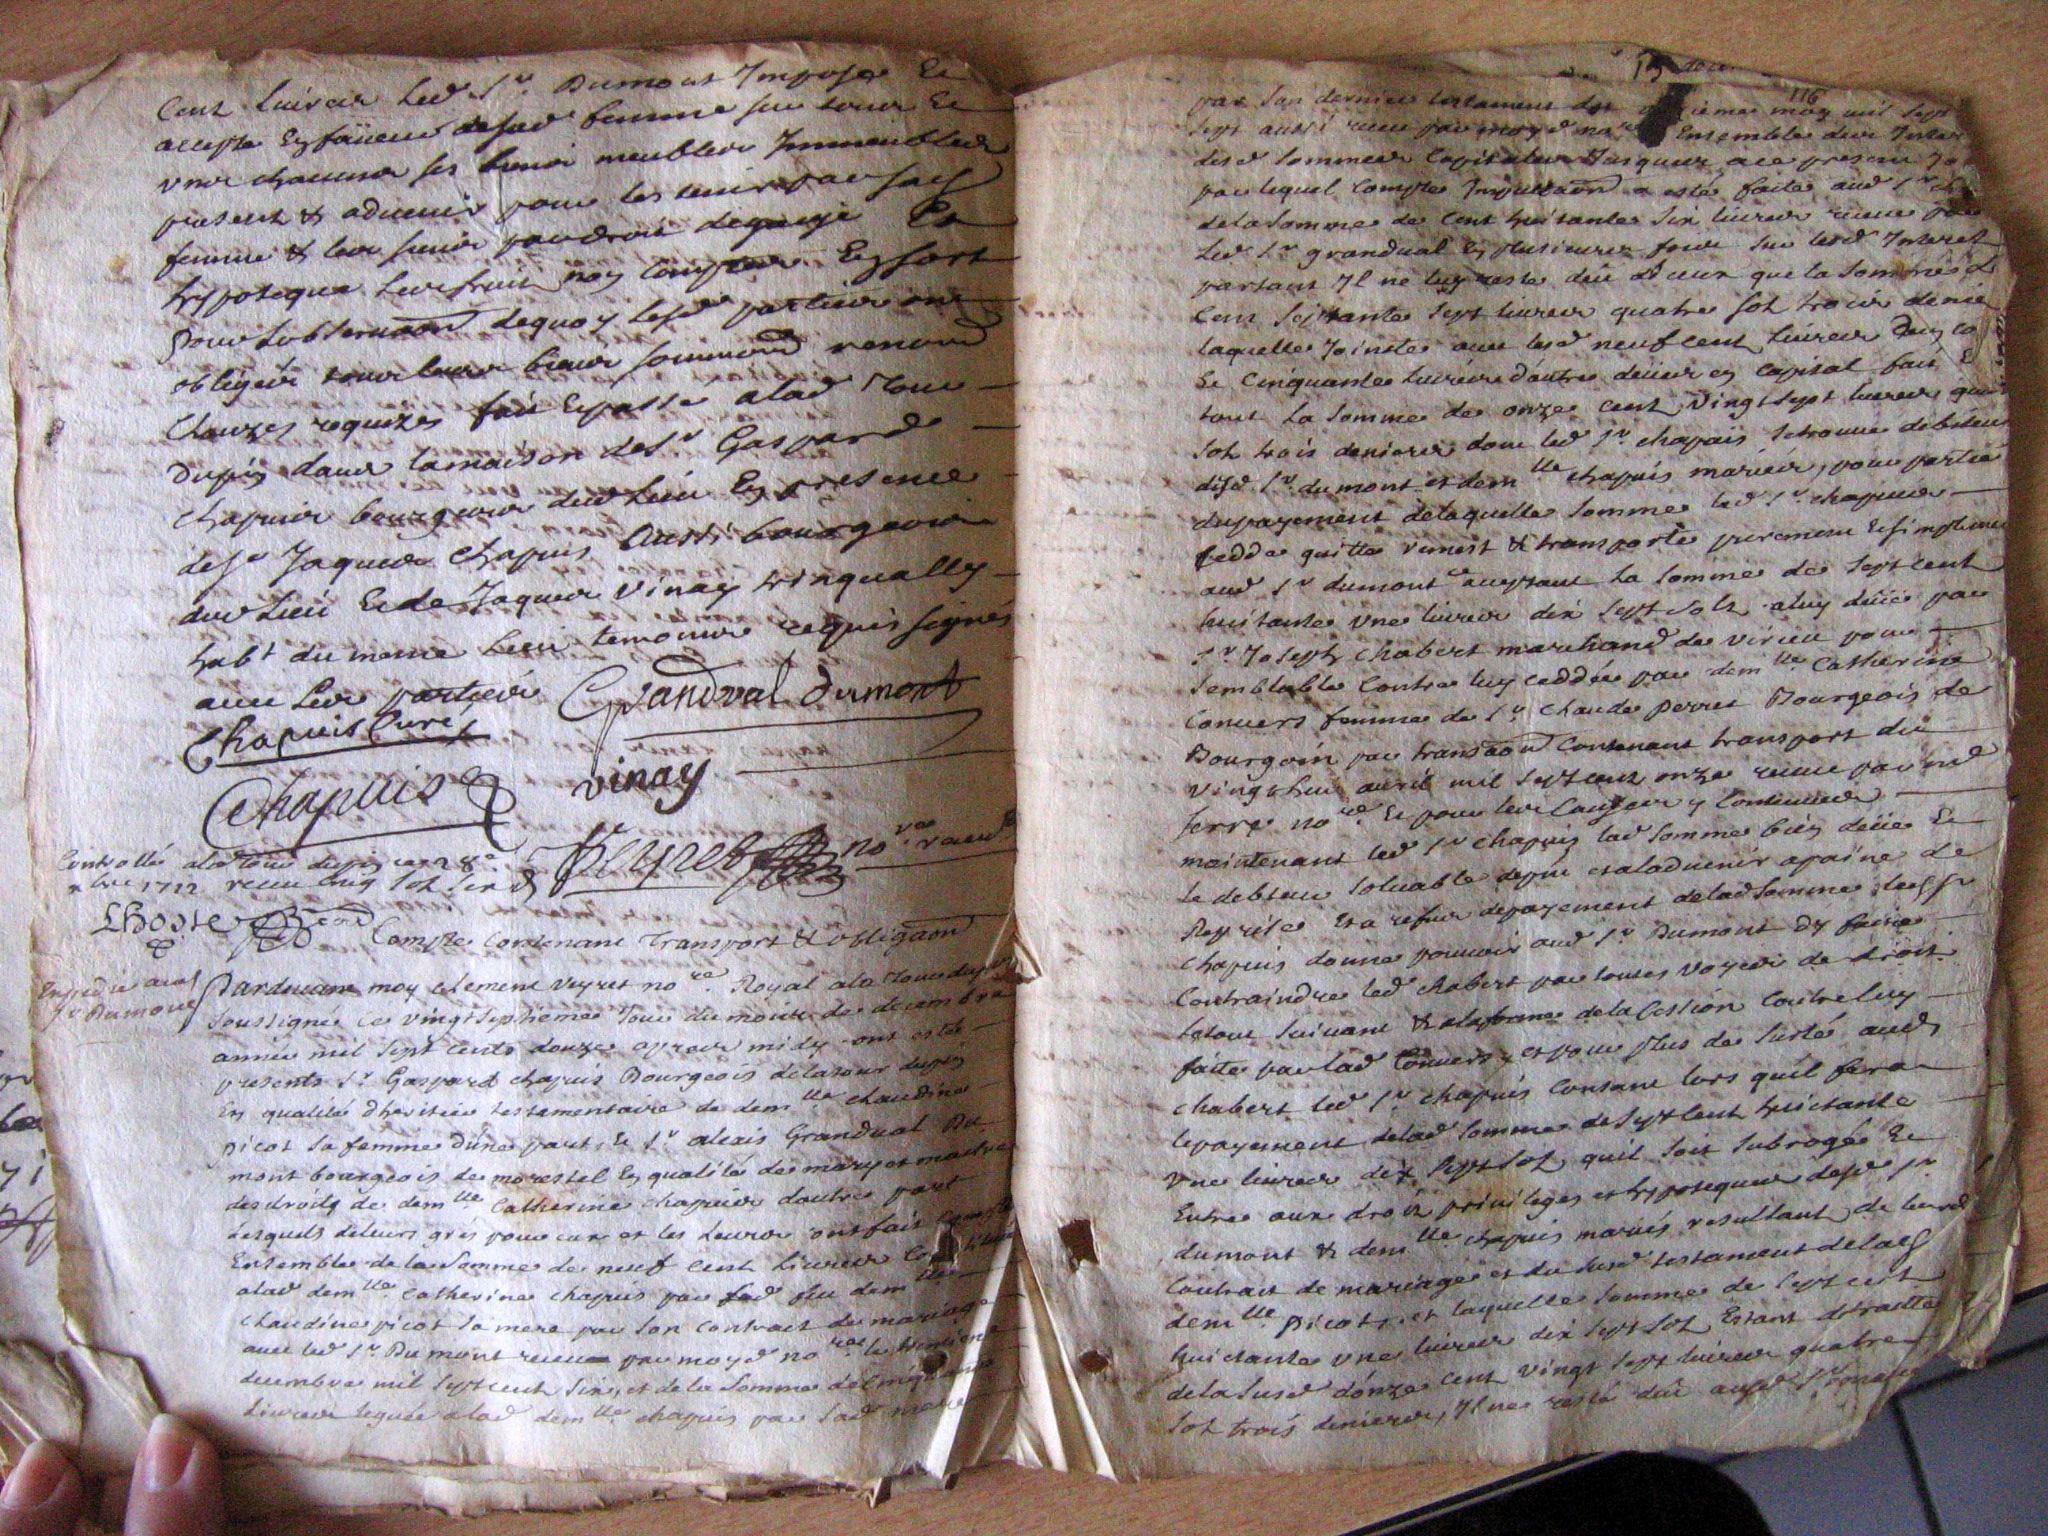 Cent Livres Led Sr Dumont Impose Et
accepte En faveur de sad femme sur tous Et
uns chacuns ses biens meubles Immeubles
present & advenir pour les tenir par sad
femme & les siens par droit de gage Et
hypoteque Les fruits non comptes En sort
Pour Lobservaon dequoy lesd parties ont
obligés tous leurs biens soummis renoncé
Clauzes requizes fait Et passé a lad Tour
Dupin dans la maison de Sr Gaspard
chapuis bourgeois dud Lieu En presence
de Sr Jaques Chapuis Aussi bourgeois
dud Lieu Et de Jaques Vinay
habt du meme Lieu temoins requis signés
avec Les parties Grandval dumont
Chapuis Curé
Chapuis vinay
Veyret nore
Controllé a la tour dupin ce 28e
xbre 1712 receu cinq sols six d
Lhoste
Compte Contenant Transport & obligaon
Expedié aud
Sr Dumont
Pardevant moy clement veyret nore Royal a la Tour dupin
soussigné Ce vingt septieme Jour du mois de decembre
année mil sept cents douze apres midy ont esté
presents Sr Gaspard chapuis Bourgeois de la tour dupin
En qualité dheritier testamentaire de demlle claudine
picot sa femme d'une part, Et Sr alexis Grandval Du
mont bourgeois de morestel En qualité de mary et maitre
des droits de demlle Catherine chapuis dautre part
Lesquels de leurs grés pour eux et les Leurs ont fait Compte
Ensemble de la somme de neuf cent Livres
a lad demlle catherine chapuis par lad feu demlle
claudine picot sa mere par son contract de mariage
avec led Sr Dumont receu par moyd nore le
decembre mil sept cent six, et de la somme de Cinquante
Livres leguée a lad demlle chapuis par sad mere
116
par son dernier testament du may mil sept
sept aussi receu par moyd nore Ensemble des Inter
desd sommes Capitales Jusques a ce present Jo
par lequel compte Imputaon a esté faite aud Sr
de la somme de cent huitante six livres receue par
Led Sr grandval En plusieurs fois sur lesd Interest
partant Il ne luy reste deu diceux que la somme de
Cent septante sept livres quatre sols trois denie
laquelle Jointe avec lesd neuf cent Livres
Et Cinquante Livres dautre
tout La somme de onze cent vingt sept livres quatre
sols trois deniers dont led Sr chapuis se trouve debiteur
desd Sr dumont et demlle chapuis mariés, pour partie
du payement de laquelle somme led Sr chapuis
cedde quitte remest & transporte purement Et simplement
aud Sr dumont acceptant La somme de sept cent
huitante une livres dix sept sols a luy düe par
Sr Joseph chabert marchand de virieu pour
semblable Contre luy ceddée par demlle Catherine
Convers femme de Sr claude perret Bourgeois de
Bourgoin par transaon Contenant transport du
vingt huit avril mil sept cent onze receue par md
ferre nore Et pour les Causes y Contenues
maintenant led Sr chapuis lad somme bien deüe Et
le debteur solvable et a ladvenir a paine de
Reprise Et a refus de payement de lad somme led Sr
chapuis donne pouvoir aud Sr Dumont dy faire
Contraindre led chabert par toutes voyes de droit
le tout suivant & a la forme de la Cession Contre luy
faite par lad Convers, et pour plus de surté aud
chabert led Sr chapuis Consant lors quil fera
le payement de lad somme de sept cent huictante
une livres dix sept sols quil soit subrogée Et
Entre aux droits privileges et hypoteques desd Sr
dumont & demlle chapuis mariés resultant de leurd
Contrait de mariage et du susd testament de lad
demlle picot, et laquelle somme de sept cent
huictante une livres dix sept sols Estant distraitte
de la susd donze cent vingt sept livres quatre
sols trois deniers, Il ne reste dû ausd Sr